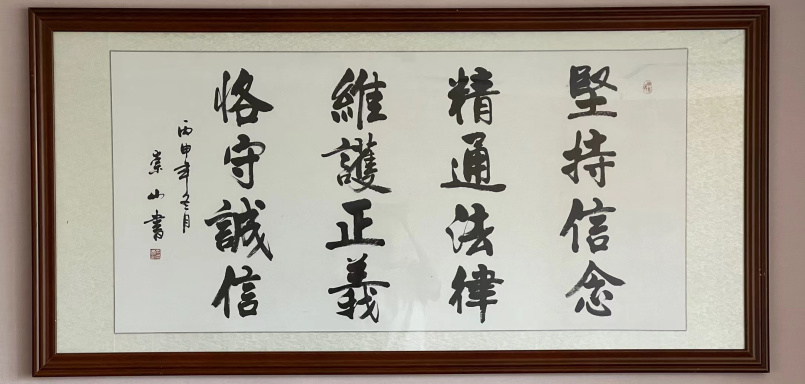 堅持信念
精通法律
維護正義
恪守誠信
丙申年冬月
崇山書